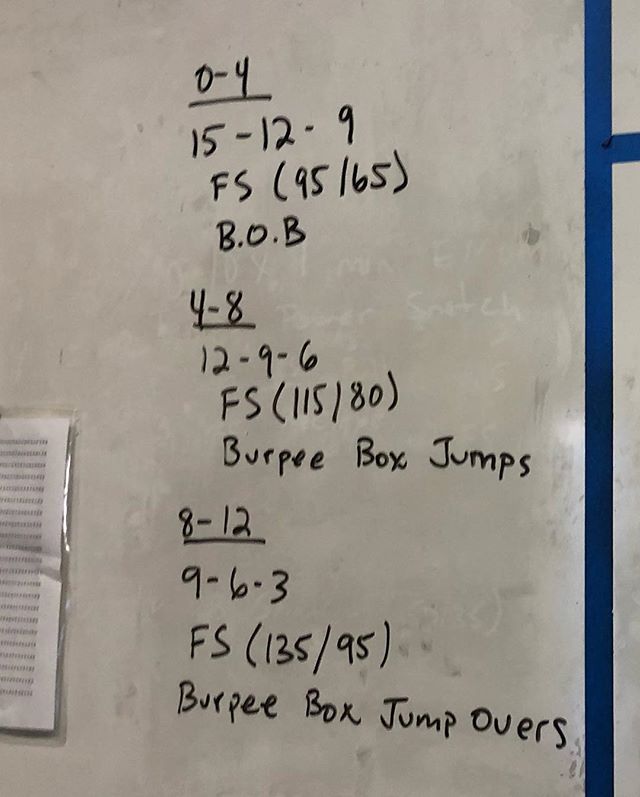 0-4
15-12-9
FS (95/65)
B.O.B
4-8
12-9-6
FS (115/80)
Burpee Box Jumps
8-12
9-6-3
FS (135/95)
Burpee Box Jump Overs